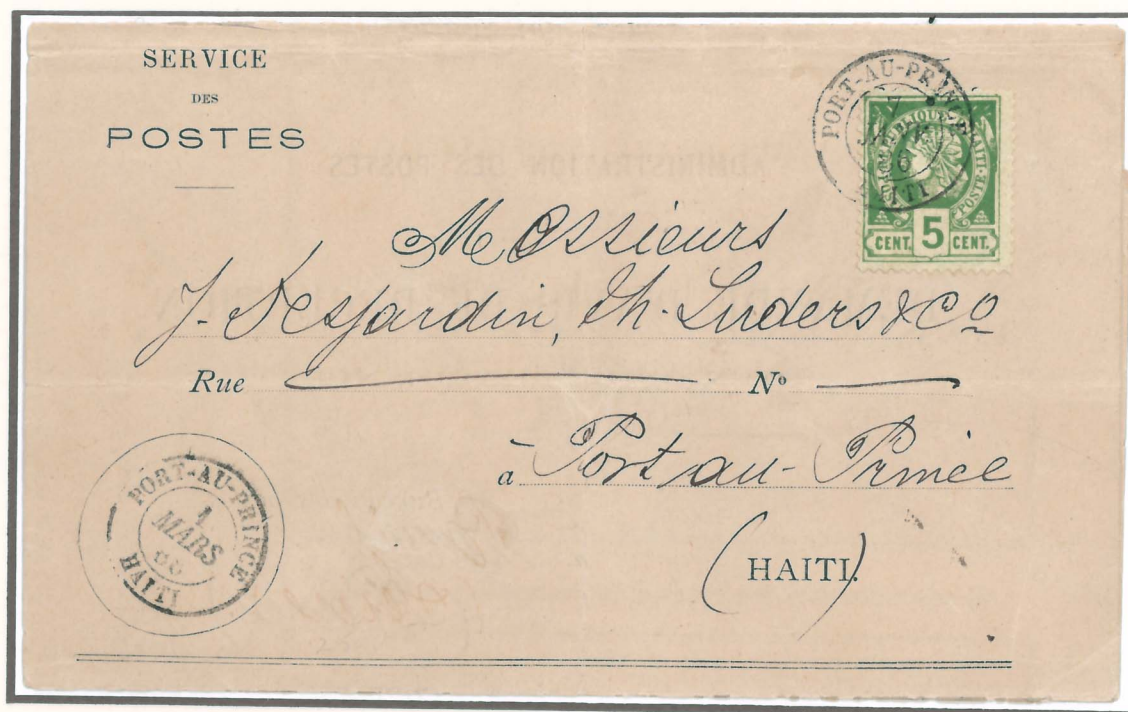 SERVICE
DES
POSTES
PORT-AU-PRINCE
7
HAITI
REPUBLIQUE HAITI
POSTE
CENT. 5 CENT.
Messieurs
J. Desjardin, Th. Luders & Co
Rue Nº
à Port-au-Prince
(HAITI)
PORT-AU-PRINCE
1
MARS
HAITI